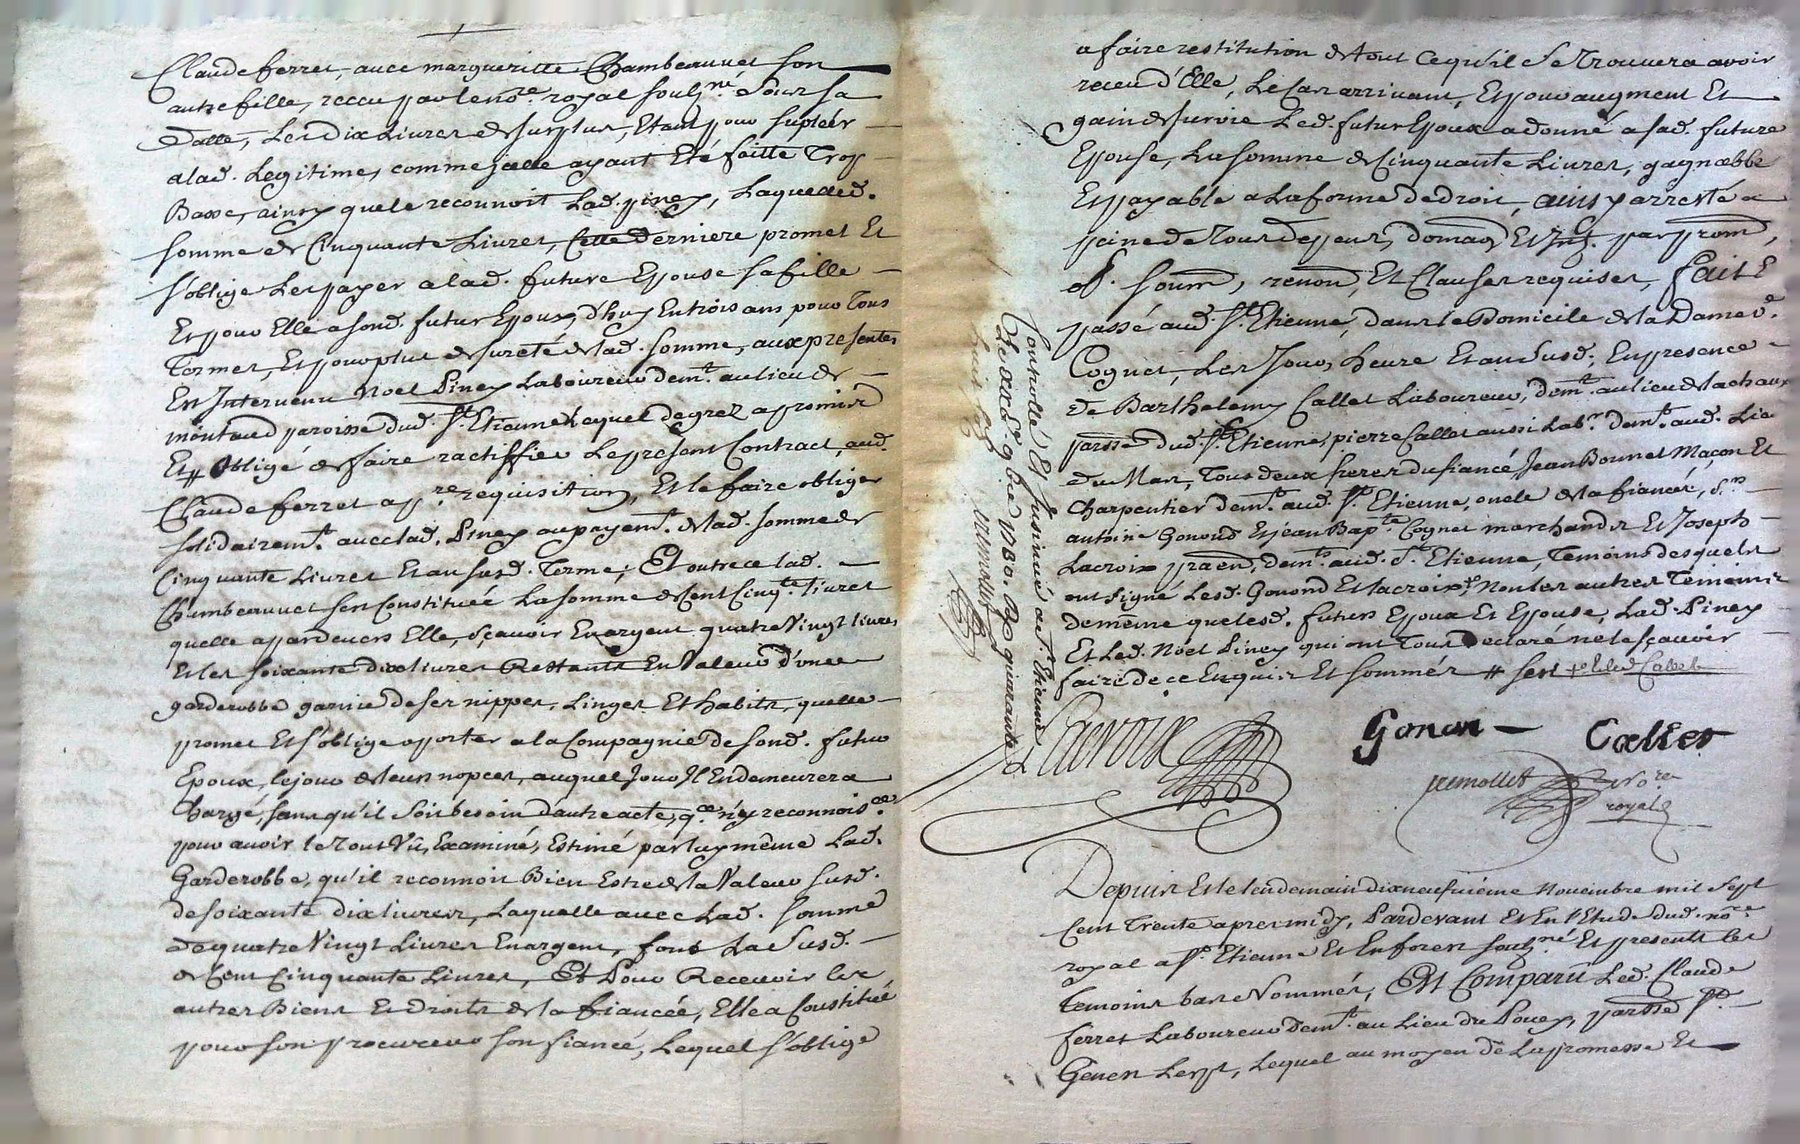 Claude ferret, avec margueritte Chambeauvet son
autre fille, receu par le no.re royal soulz.né Sous sa
datte, Les dix Livres de surplus, Etant pour supleer
a lad. Legitime, comme jcelle ayant Eté faitte Trop
Basse, ainsy que le reconnoit Lad. piney, Laquelle d.
somme de Cinquante Livres, Cette derniere promet Et
s'oblige Les payer a lad. future Epouse sa fille
Et pour Elle a sond. futur Epoux, d'huy En trois ans pour Tous
Termes, Et pour plus de sureté de lad. somme, aux presentes
Est Intervenu Noel Piney Laboureur dem.t au lieu de
montaud paroisse dud. St. Etienne Lequel de grez a promis
Et # Obligé de faire ractiffier Le present Contract, aud.
Claude ferret a p.re requisition, Et le faire obliger
solidairem.t avec lad. Piney au payem.t de lad. somme de
Cinquante Livres Et au susd. Terme; Et outre ce lad.
Chambeauvet s'en Constituée La somme de Cent Cinq.te livres
quelle a pardevers Elle, sçavoir En argent quatre Vingt livres
Et les soixante dix livres Restants En Valeur d'une
garderobbe garnie de ses nippes, Linges Et habits, quelle
promet Et s'oblige apporter a la Compagnie de sond. futur
Epoux, le jour de leurs nopces, auquel Jour Il En demeurera
Chargé, sans qu'il soit besoin dautre acte, q.ce n'y reconnois.ce
pour avoir le Tout Vû, Examiné, Estimé par luy même Lad.
Garderobbe, qu'il reconnoit Bien Estre de la Valeur susd.
de soixante dix livres, Laquelle avec Lad. somme
de quatre Vingt Livres En argent, font La Susd.
de Cent Cinquante Livres, Et Pour Recevoir les
autres Biens Et droits de la fiancée, Elle a Constitué
pour son procureur son fiancé, Lequel s'oblige
a faire restitution de tout Ce qu'il Se Trouvera avoir
receu d'Elle, Le Cas arrivant, Et pour augment Et
gain de survie Led. futur Epoux a donné a sad. future
Epouse, La somme de Cinquante Livres, gagnable
Et payable a La forme de droit, ainsy arresté a
peine de Tous depens, domag Et Jnt. par prom,
ob. soum, renon, Et Clauses requises, fait E
passé aud. St. Etienne, dans le Domicile de la Dame d.
Cognet, Les Jour, heure Et an Susd; En presence
de Barthelemy Callet Laboureur, dem.t au lieu de la chaux
parsse dud. St. Etienne, pierre Callet aussi Lab.r dem.t aud. Lieu
du Mas, Tous deux freres du fiancé, Jean Bonnet Maçon Et
Charpentier dem.t aud. St. Etienne, oncle de la fiancée, S.rs
antoine Gonond Et jean Bap.te Cognet marchands Et Joseph
Lacroix praēn, dem.ts aud. St. Etienne, Temoins desquels
ont signé Lesd. Gonond Et lacroix, Non les autres Temoins
de meme que lesd. futurs Epoux Et Epouse, Lad. Piney
Et Led. Noel Piney qui ont Tous Declaré ne le sçavoir
faire de ce Enquis Et sommés # sest + et led Callet
Controllé Et Insinué a St. Etienne
Le xxe 9bre 1730. Reçu quarante
huit sols
premollet
Lacroix
Gonon
Callet
premollet No.re
royal
Depuis Et le lendemain dix neufviéme Novembre mil Sept
Cent Trente apres midy, Pardevant Et En l'Etude dud. no.re
royal a St. Etienne Et En forez soulz.né Et presents les
Temoins bas Nommés, Est Comparu Led. Claude
ferret Laboureur Dem.t au Lieu du Pouey, parsse St.
Genest Lerpt, Lequel au moyen de La promesse Et